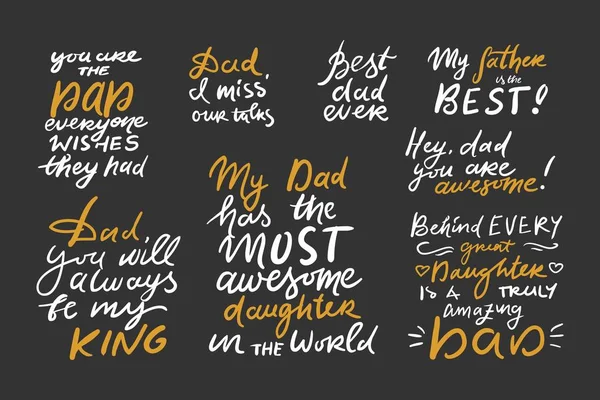 you are
THE
DAD
everyone
WISHES
they had
Dad,
I miss
our talks
Best
dad
ever
My father
is the
BEST!
Hey, dad
you are
awesome!
Dad,
you will
always
be my
KING
My Dad
has the
MOST
awesome
daughter
in THE WORLD
Behind EVERY
great
Daughter
IS A TRULY
amazing
DAD